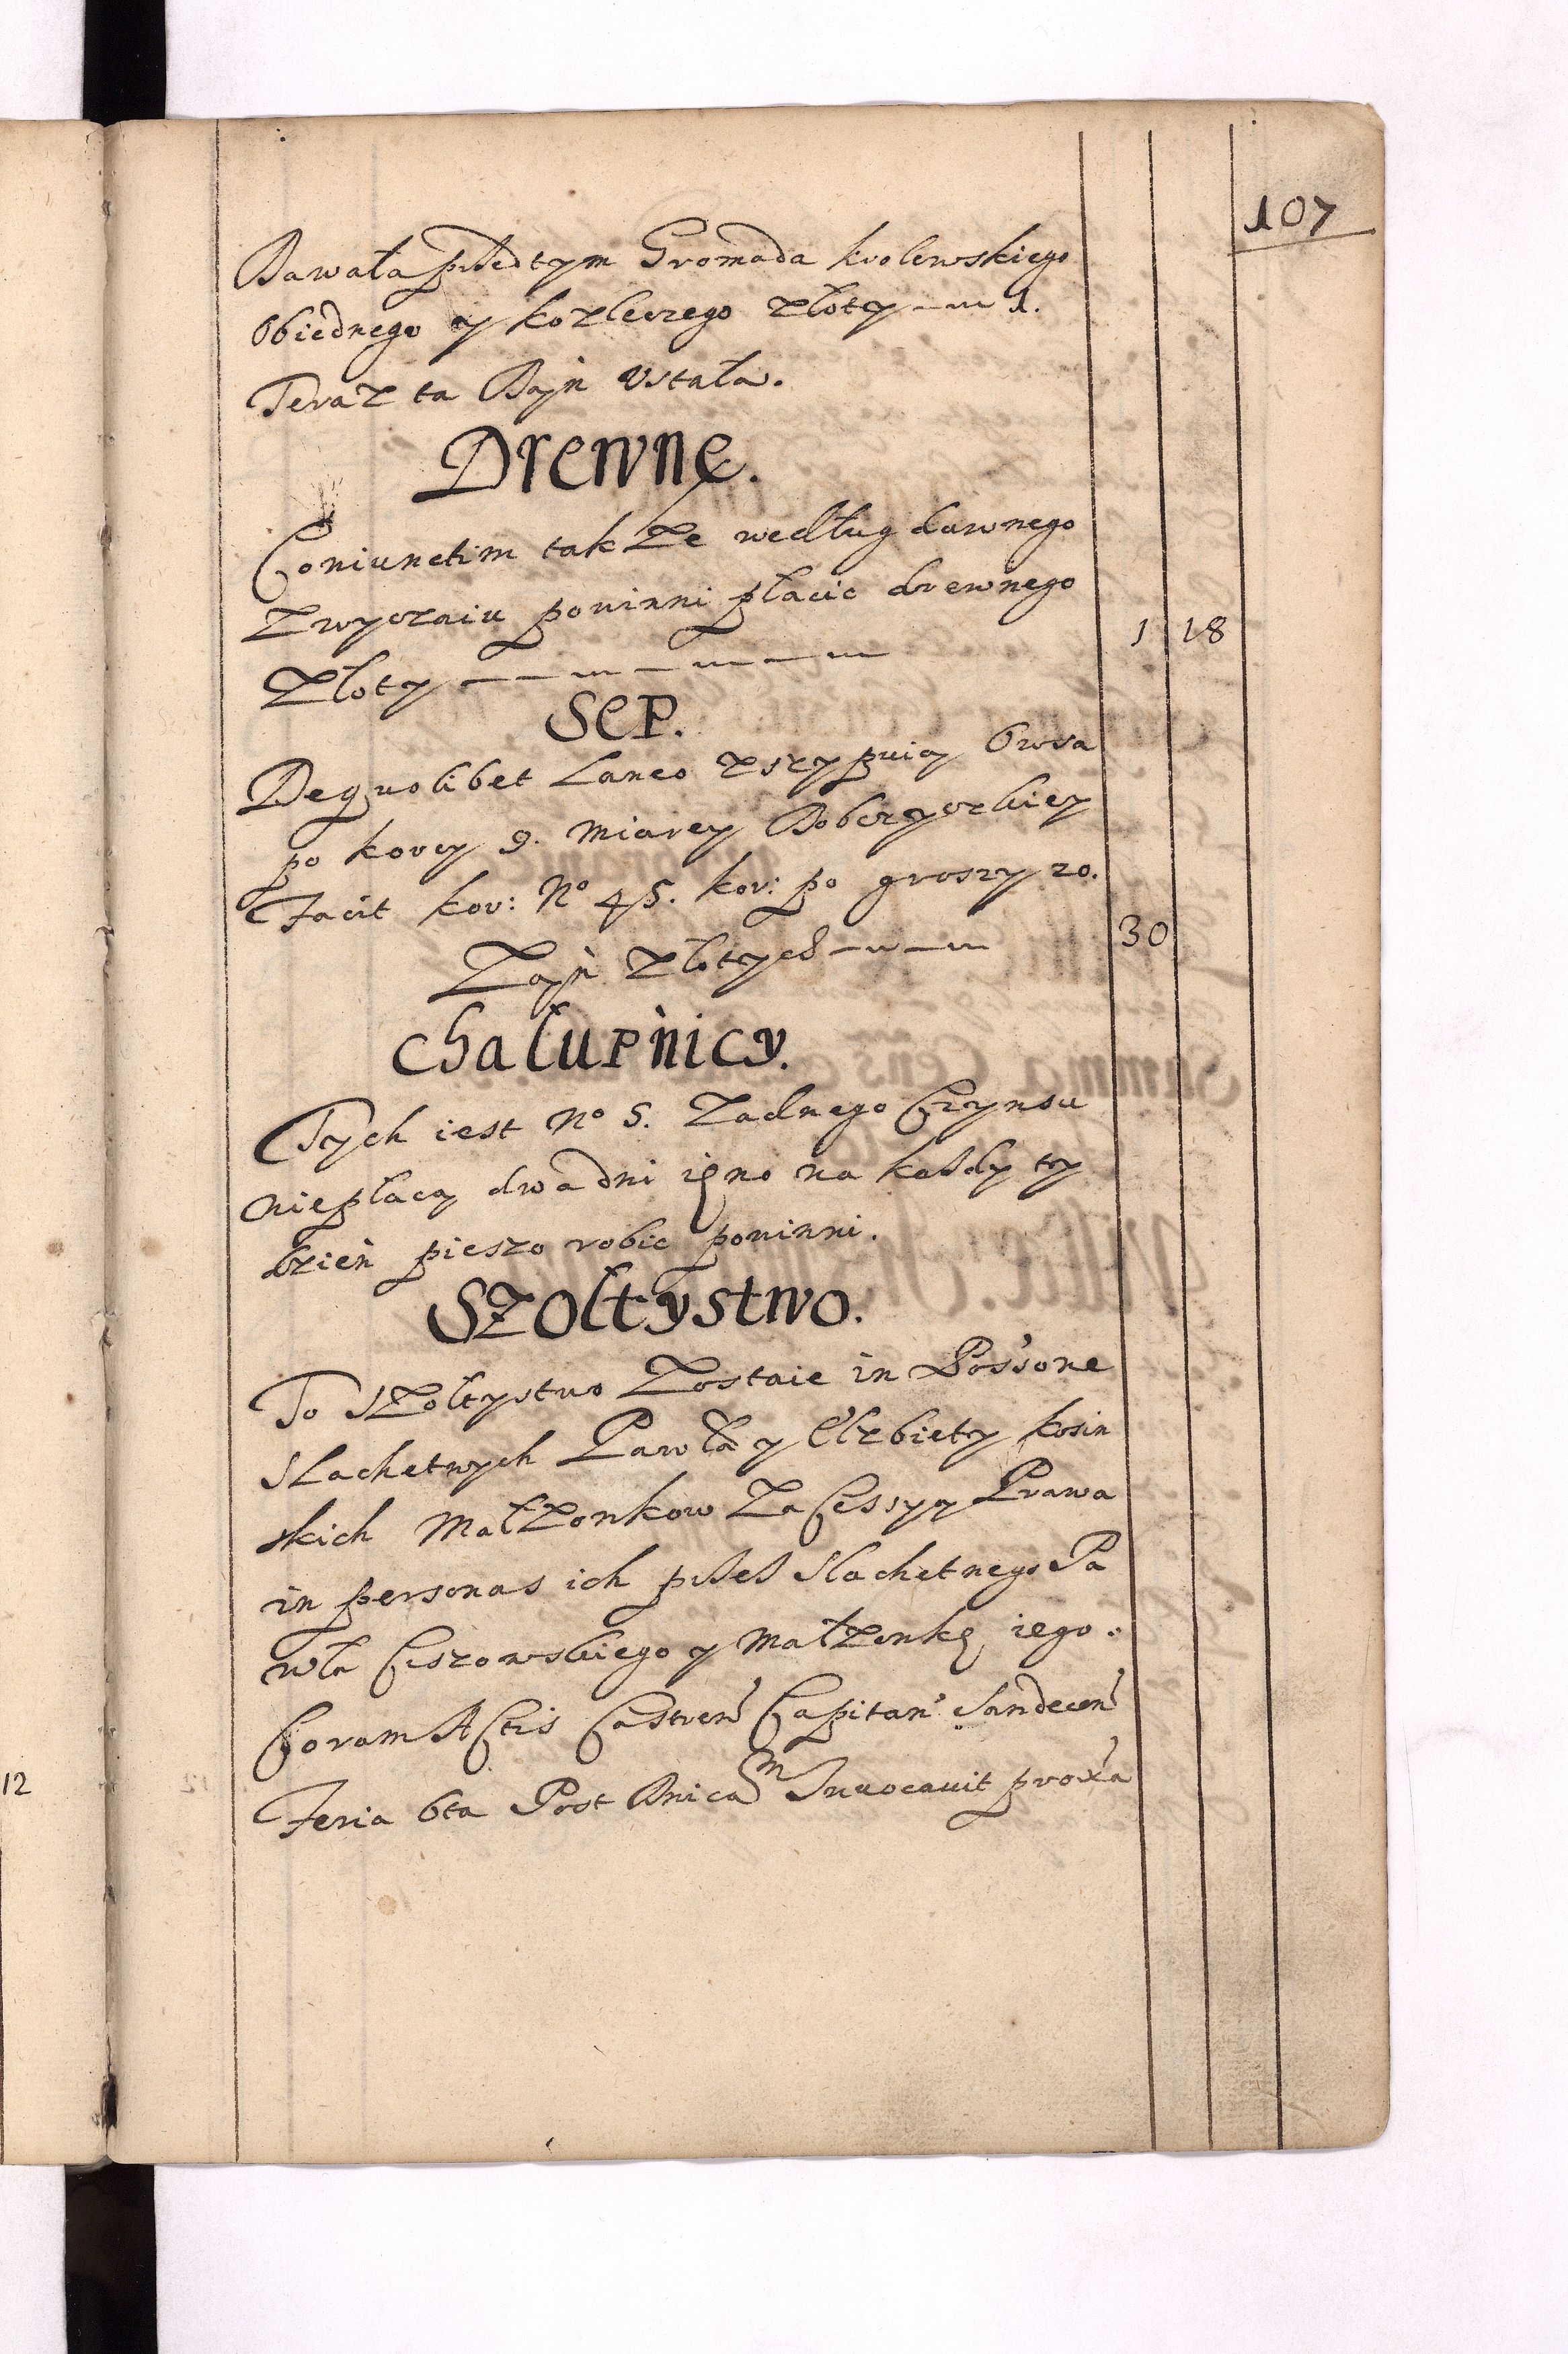 107
Dawała przedtym Gromada krolewskiego
Obiednego y kozleczego złoty 1.
Teraz ta Dań Ustała.
Drewne.
Coniunctim takze według dawnego
zwyczaiu powinni płacic drewnego
złoty 1 18
Sep.
De quolibet Laneo zsypuią Owsa
po korcy 9. miarey Bobczyczkiey
Facit kor: No 45. kor: po groszy 20.
zań złotych 30
Chałupnicy.
Tych iest No 5. zadnego Czynsu
niepłacą dwa dni ięno na kazdy ty
dzien pieszo robic powinni.
Szołtystwo.
To Szołtystwo zostaie in Possone
Slachetnych Pawła y Elzbiety kosin
skich małzonkow za Cessyą Prawa
in personas ich przez Slachetnego Pa
wła Ciszowskiego y małzonkę iego.
Coram Actis Castren Capitan Sandecen
Feria 6ta Post Dnicam Invocavit proxa
12